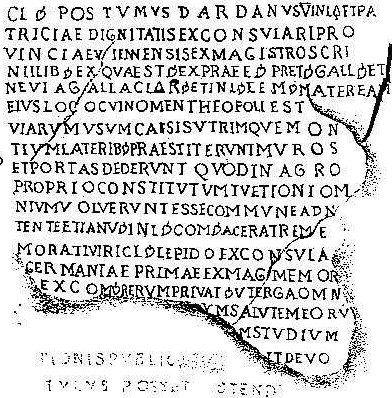 CLꝊ POSTVMVS DARDANVS VINLꝊETPA
TRICIAE DIGNITATIS EX CONSVLARI PRO
VINCIAE VIENNENSIS EX MAGISTRO SCRI
NII LIBꝊ EX QVAESTꝊ EX PRAEFꝊ PRETꝊ GALLꝊ ET
NEVIA GALLA CLARꝊ ET INLꝊ FEMꝊ MATER FAM
EIVS LOCO CVI NOMEN THEOPOLI EST
VIARVM VSVM CAESIS VTRIMQVE MON
TIVM LATERIBꝊ PRAESTITERVNT MVROS
ET PORTAS DEDERVNT QVOD IN AGRO
PROPRIO CONSTITVTVM TVETIONI OM
NIVM VOLVERVNT ESSE COMMVNE ADN
TENTE ETIAM VꝊ INLꝊ COMꝊ AC FRATRE ME
MORATI VIRI CLꝊ LEPIDO EX CONSVLA
GERMANIAE PRIMAE EX MAGꝊ MEMOR
EX COMꝊ RERVM PRIVATꝊ VT ERGA OMN
VM SALVTEM EORV
M STVDIVM
IT DEVO
TIONIS PVBLICAE
TVLVS POSSET OSTENDI